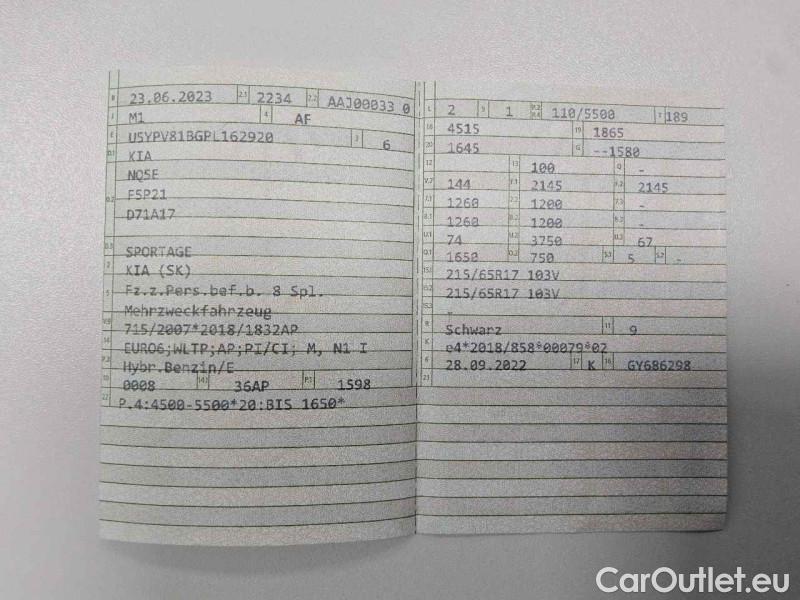 B 23.06.2023 2.1 2234 2.2 AAJ00033 0
J M1 4 AF
E U5YPV81BGPL162920 3 6
D.1 KIA
NQ5E
D.2 F5P21
D71A17
D.3 SPORTAGE
2 KIA (SK)
5 Fz.z.Pers.bef.b. 8 Spl.
Mehrzweckfahrzeug
V.9 715/2007*2018/1832AP
14 EURO6;WLTP;AP;PI/CI; M, N1 I
P.3 Hybr.Benzin/E
10 0008 14.1 36AP P.1 1598
22 P.4:4500-5500*20:BIS 1650*
L 2 9 1 P.2 P.4 110/5500 T 189
18 4515 19 1865
20 1645 G --1580
12 13 100 Q -
V.7 144 F.1 2145 F.2 2145
7.1 1260 7.2 1200 7.3 -
8.1 1260 8.2 1200 8.3 -
U.1 74 U.2 3750 U.3 67
O.1 1650 O.2 750 S.1 5 S.2 -
15.1 215/65R17 103V
15.2 215/65R17 103V
15.3 -
R Schwarz 11 9
K e4*2018/858*00079*02
6 28.09.2022 17 K 16 GY686298
21
CarOutlet.eu